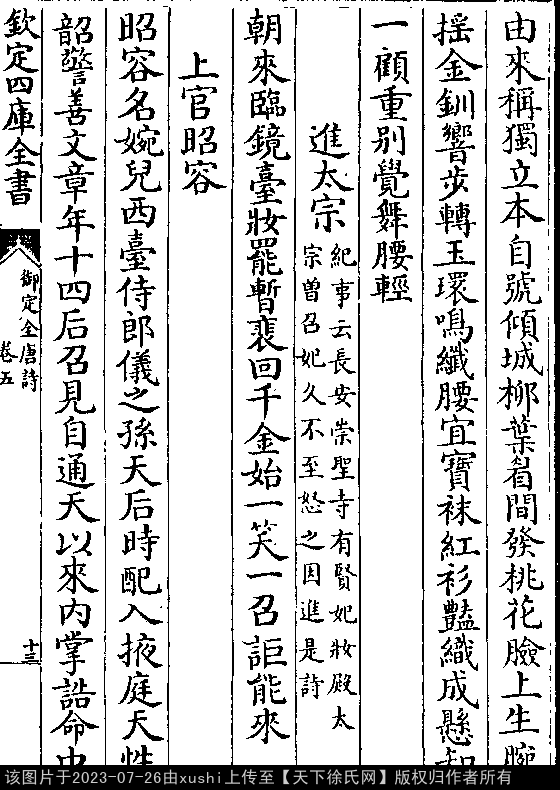 由來稱獨立本自號傾城柳葉眉間發桃花臉上生腕
揺金釧響步轉玉環鳴纖腰宜寶袜紅衫豔織成懸知
一顧重别覺舞腰輕
進太宗
紀事云長安崇聖寺有賢妃妝殿太
宗曾召妃久不至怒之因進是詩
朝來臨鏡臺妝罷暫裴回千金始一笑一召詎能來
上官昭容
昭容名婉兒西臺侍郎儀之孫天后時配入掖庭天性
韶警善文章年十四后召見自通天以來内掌誥命中
欽定四庫全書
御定全唐詩
卷五
十三
该图片于2023-07-26由xushi上传至【天下徐氏网】版权归作者所有